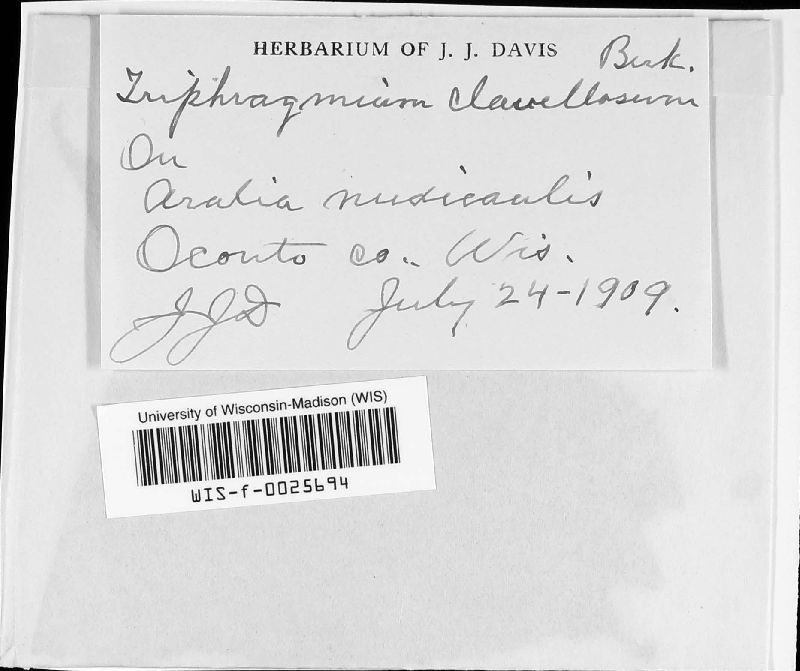 HERBARIUM OF J. J. DAVIS
Berk.
Triphragmium clavellosum
On
Aralia nudicaulis
Oconto co., Wis.
JJD July 24-1909.
University of Wisconsin-Madison (WIS)
WIS-f-0025694